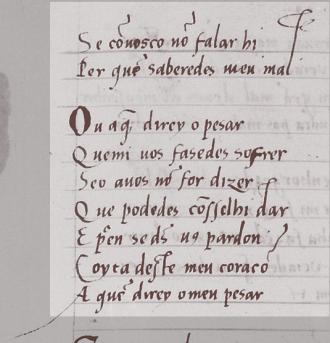 Se cōvosco nō falar hi
Per quē saberedes meu mal
Ou a q̄ direy o pesar
Quemi uos fasedes soffrer
Seo auos nō for dizer
Que podedes cōsselhi dar
E pēn seds us perdon
Coyta deste meu coraçō
A quē direy omeu pesar